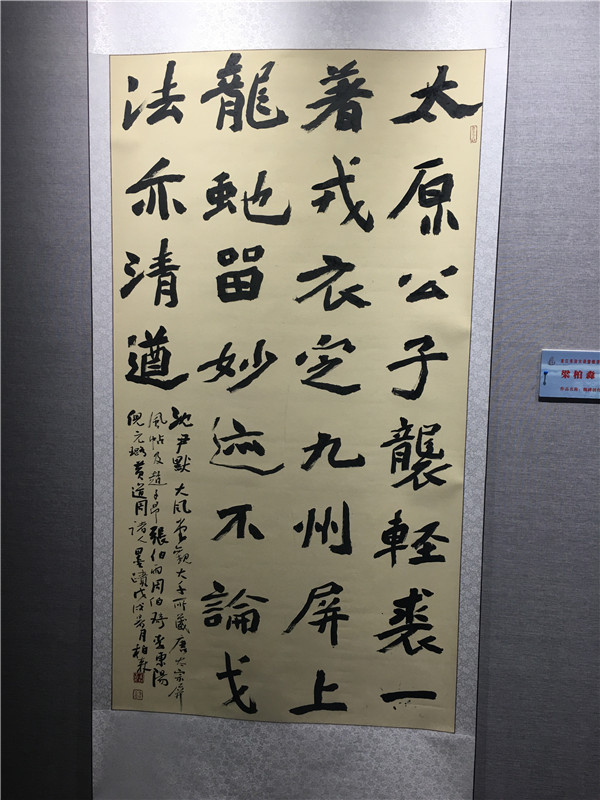 太原公子襲輕裘一
著戎衣定九州屏上
龍虵留妙迹不論戈
法亦清遒
沈尹默大風堂觀大千所藏唐太宗屏
風帖及趙子昂張伯雨周伯琦
倪元璐黄道周諸人墨蹟戊戌
月柏森
梁柏森